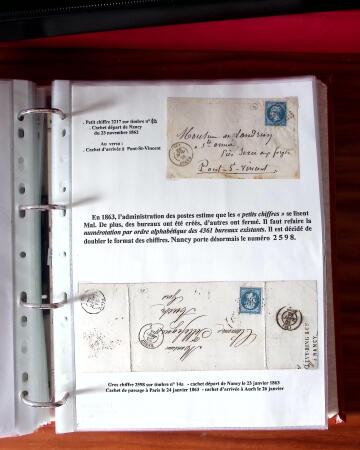 . Petit chiffre 2217 sur timbre n°
. Cachet départ de Nancy
du 23 novembre 1862
Au verso :
. Cachet d'arrivée à Pont-St-Vincent
Monsieur
Pont-St-Vincent
En 1863, l'administration des postes estime que les « petits chiffres » se lisent
Mal. De plus, des bureaux ont été créés, d'autres ont fermé. Il faut refaire la
numérotation par ordre alphabétique des 4361 bureaux existants. Il est décidé de
doubler le format des chiffres. Nancy porte désormais le numéro 2598.
Monsieur
NANCY
Gros chiffre 2598 sur timbre n° 14a - cachet départ de Nancy le 23 janvier 1863
Cachet de passage à Paris le 24 janvier 1863 - cachet d'arrivée à Auch le 26 janvier